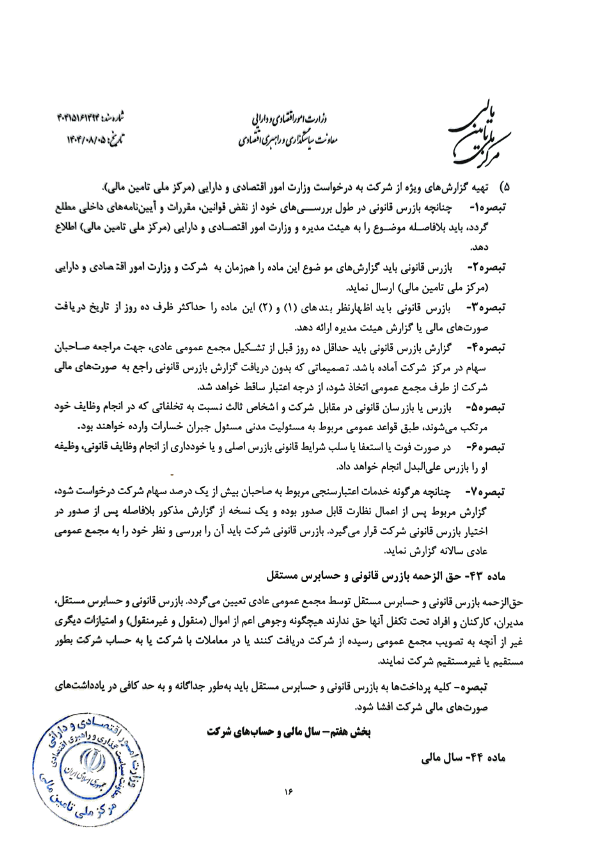 مرکز ملی تامین مالی
وزارت امور اقتصادی و دارایی
معاونت سیاستگذاری و راهبری اقتصادی
شماره سند: ۴۰۴۱۵۱۶۱۴۹۴
تاریخ: ۱۴۰۴/۰۸/۰۵
۵) تهیه گزارش‌های ویژه از شرکت به درخواست وزارت امور اقتصادی و دارایی (مرکز ملی تامین مالی).
تبصره۱- چنانچه بازرس قانونی در طول بررسی‌های خود از نقض قوانین، مقررات و آیین‌نامه‌های داخلی مطلع
گردد، باید بلافاصله موضوع را به هیئت مدیره و وزارت امور اقتصادی و دارایی (مرکز ملی تامین مالی) اطلاع
دهد.
تبصره۲- بازرس قانونی باید گزارش‌های موضوع این ماده را همزمان به شرکت و وزارت امور اقتصادی و دارایی
(مرکز ملی تامین مالی) ارسال نماید.
تبصره۳- بازرس قانونی باید اظهارنظر بندهای (۱) و (۲) این ماده را حداکثر ظرف ده روز از تاریخ دریافت
صورت‌های مالی یا گزارش هیئت مدیره ارائه دهد.
تبصره۴- گزارش بازرس قانونی باید حداقل ده روز قبل از تشکیل مجمع عمومی عادی، جهت مراجعه صاحبان
سهام در مرکز شرکت آماده باشد. تصمیماتی که بدون دریافت گزارش بازرس قانونی راجع به صورت‌های مالی
شرکت از طرف مجمع عمومی اتخاذ شود، از درجه اعتبار ساقط خواهد شد.
تبصره۵- بازرس یا بازرسان قانونی در مقابل شرکت و اشخاص ثالث نسبت به تخلفاتی که در انجام وظایف خود
مرتکب می‌شوند، طبق قواعد عمومی مربوط به مسئولیت مدنی مسئول جبران خسارات وارده خواهند بود.
تبصره۶- در صورت فوت یا استعفا یا سلب شرایط قانونی بازرس اصلی و یا خودداری از انجام وظایف قانونی، وظیفه
او را بازرس علی‌البدل انجام خواهد داد.
تبصره۷- چنانچه هرگونه خدمات اعتبارسنجی مربوط به صاحبان بیش از یک درصد سهام شرکت درخواست شود،
گزارش مربوط پس از اعمال نظارت قابل صدور بوده و یک نسخه از گزارش مذکور بلافاصله پس از صدور در
اختیار بازرس قانونی شرکت قرار می‌گیرد. بازرس قانونی شرکت باید آن را بررسی و نظر خود را به مجمع عمومی
عادی سالانه گزارش نماید.
ماده ۴۳- حق الزحمه بازرس قانونی و حسابرس مستقل
حق‌الزحمه بازرس قانونی و حسابرس مستقل توسط مجمع عمومی عادی تعیین می‌گردد. بازرس قانونی و حسابرس مستقل،
مدیران، کارکنان و افراد تحت تکفل آنها حق ندارند هیچگونه وجوهی اعم از اموال (منقول و غیرمنقول) و امتیازات دیگری
غیر از آنچه به تصویب مجمع عمومی رسیده از شرکت دریافت کنند یا در معاملات با شرکت یا به حساب شرکت بطور
مستقیم یا غیرمستقیم شرکت نمایند.
تبصره- کلیه پرداخت‌ها به بازرس قانونی و حسابرس مستقل باید به‌طور جداگانه و به حد کافی در یادداشت‌های
صورت‌های مالی شرکت افشا شود.
بخش هفتم- سال مالی و حساب‌های شرکت
ماده ۴۴- سال مالی
وزارت امور اقتصادی و دارائی
معاونت سیاست گذاری و راهبری اقتصادی
جمهوری اسلامی ایران
مرکز ملی تامین مالی
۱۶